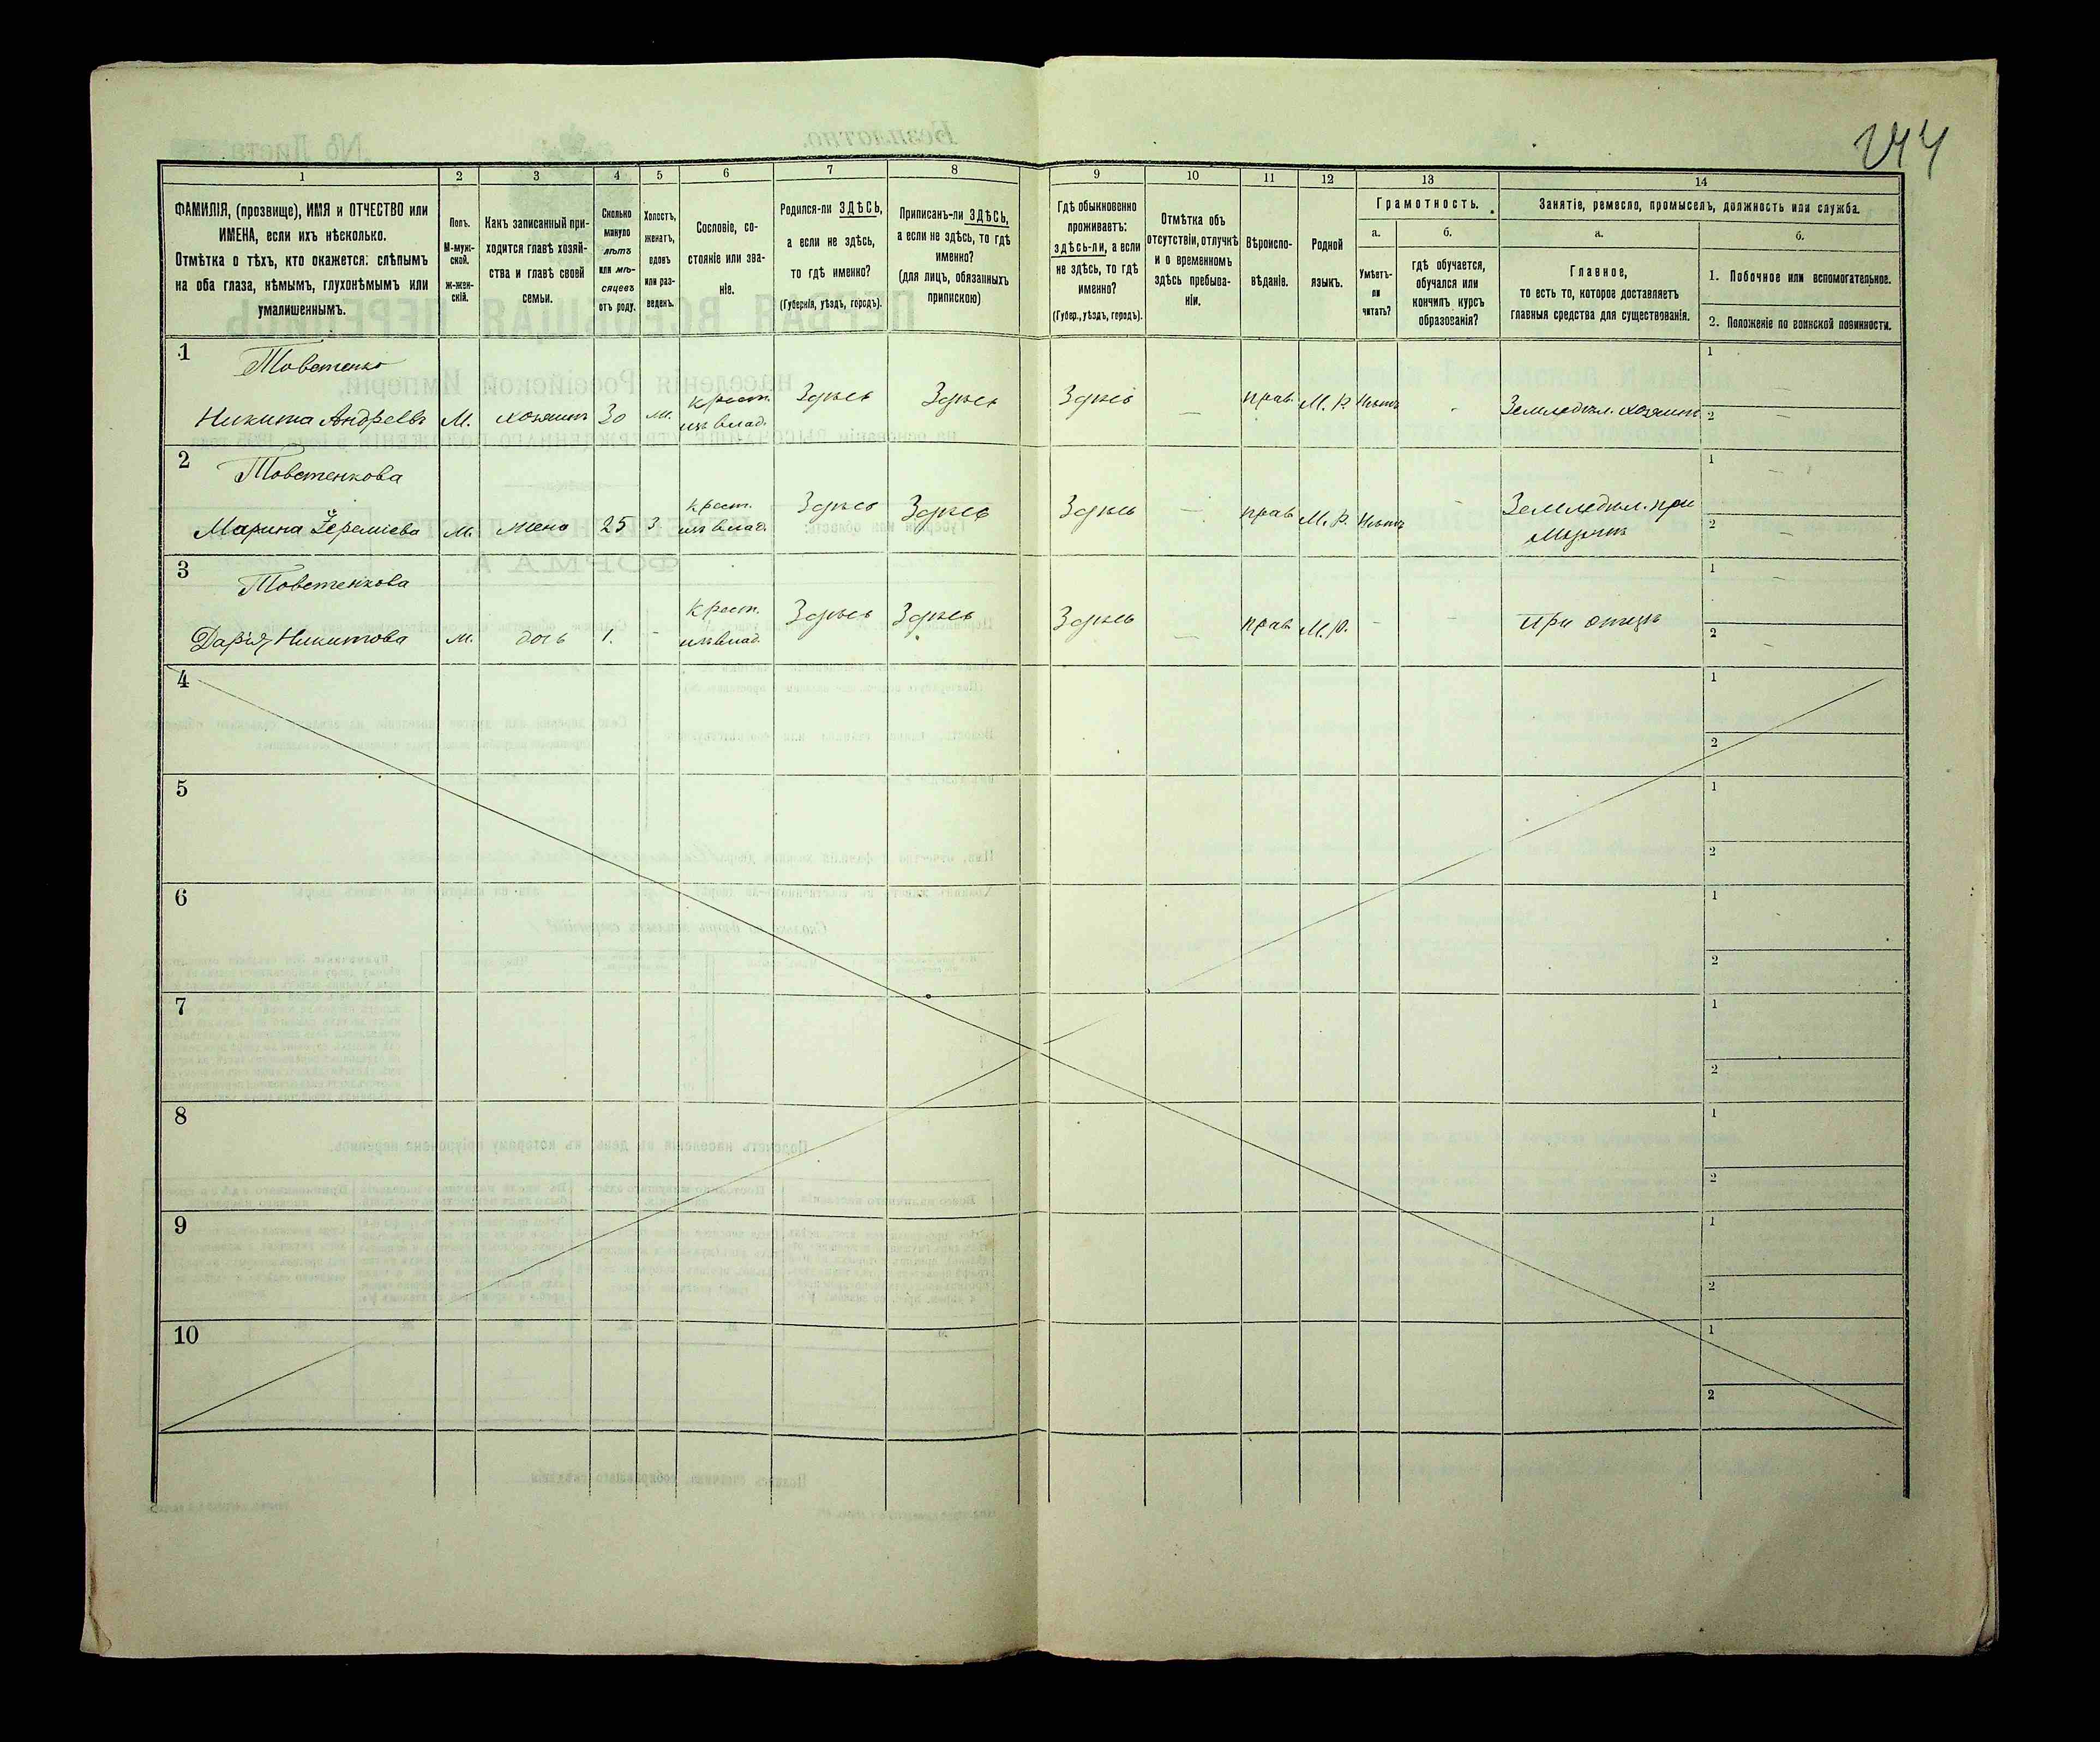 244
1
2
3
4
5
6
7
8
9
10
11
12
13
14
ФАМИЛІЯ, (прозвище), ИМЯ и ОТЧЕСТВО или
ИМЕНА, если ихъ нѣсколько.
Отмѣтка о тѣхъ, кто окажется: слѣпымъ
на оба глаза, нѣмымъ, глухонѣмымъ или
умалишеннымъ.
Полъ.
М-муж-
ской.
ж-жен-
скій.
Какъ записанный при-
ходится главѣ хозяй-
ства и главѣ своей
семьи.
Сколько
минуло
лѣтъ
или мѣ-
сяцевъ
отъ роду.
Холостъ,
женатъ,
вдовъ
или раз-
веденъ.
Сословіе, со-
стояніе или зва-
ніе.
Родился-ли ЗДѢСЬ,
а если не здѣсь,
то гдѣ именно?
(Губернія, уѣздъ, городъ).
Приписанъ-ли ЗДѢСЬ,
а если не здѣсь, то гдѣ
именно?
(для лицъ, обязанныхъ
припискою)
Гдѣ обыкновенно
проживаетъ:
здѣсь-ли, а если
не здѣсь, то гдѣ
именно?
(Губер., уѣздъ, городъ).
Отмѣтка объ
отсутствіи, отлучкѣ
и о временномъ
здѣсь пребыва-
ніи.
Вѣроиспо-
вѣданіе.
Родной
языкъ.
Грамотность.
а.
Умѣетъ-
ли
читать?
б.
гдѣ обучается,
обучался или
кончилъ курсъ
образованія?
Занятіе, ремесло, промыселъ, должность или служба.
а.
Главное,
то есть то, которое доставляетъ
главныя средства для существованія.
б.
1. Побочное или вспомогательное.
2. Положеніе по воинской повинности.
1
Товстенко
Никита Андреевъ
М.
хозяинъ
30
ж.
крест.
изъ влад.
Здѣсь
Здѣсь
Здѣсь
—
прав.
М. Р.
Нѣтъ
Земледѣл. хозяинъ
1 —
2 —
2
Товстенкова
Марина
м.
жена
25
З
крест.
изъ влад.
Здѣсь
Здѣсь
Здѣсь
—
прав.
М. Р.
Нѣтъ
Земледѣл. при
мужѣ
1 —
2 —
3
Товстенкова
Дарія Никитова
м.
дочь
1.
-
крест.
изъ влад.
Здѣсь
Здѣсь
Здѣсь
—
прав.
М. Р.
-
-
при отцѣ
1 —
2 —
4
1
2
5
1
2
6
1
2
7
1
2
8
1
2
9
1
2
10
1
2